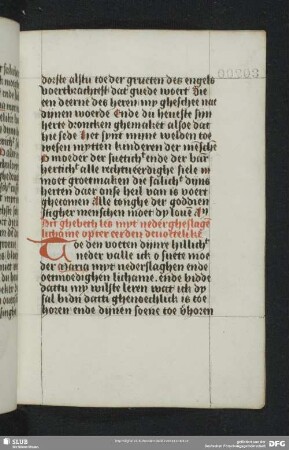 dorste alstu toe der grueten des engels
voert brachtest dat guede woert Sie
een deerne des heren my gheschee nae
dynen woerde Ende du heueste syn
herte droncken ghemaket alsoe dat
hie sede het synt myne welden toe
wesen mytten kinderen der mēsche
O moeder der sueticheit ende der barm
hertich⁹ alle rechtueerdighe siele in
moet groetmaken die salich⁹ dyns
herten daer onse heil van is voert
ghecomen Alle tonghe der godden
stigher menschen moet dy louē Am̄
Dit ghebeth les myt nedergheslagē
lichame op der eerden deuoetelikē
Toe den voeten dynre hillich⁹
neder valle ick o suete moe
der maria myt nedergheslaghen ende
oetmoedighen lichame ende bidde
dattu my wilste leren wat ick dy
sal bidn datti ghenoechlick is toe
horen ende dynen soene toe v̓horen
SLUB
DFG